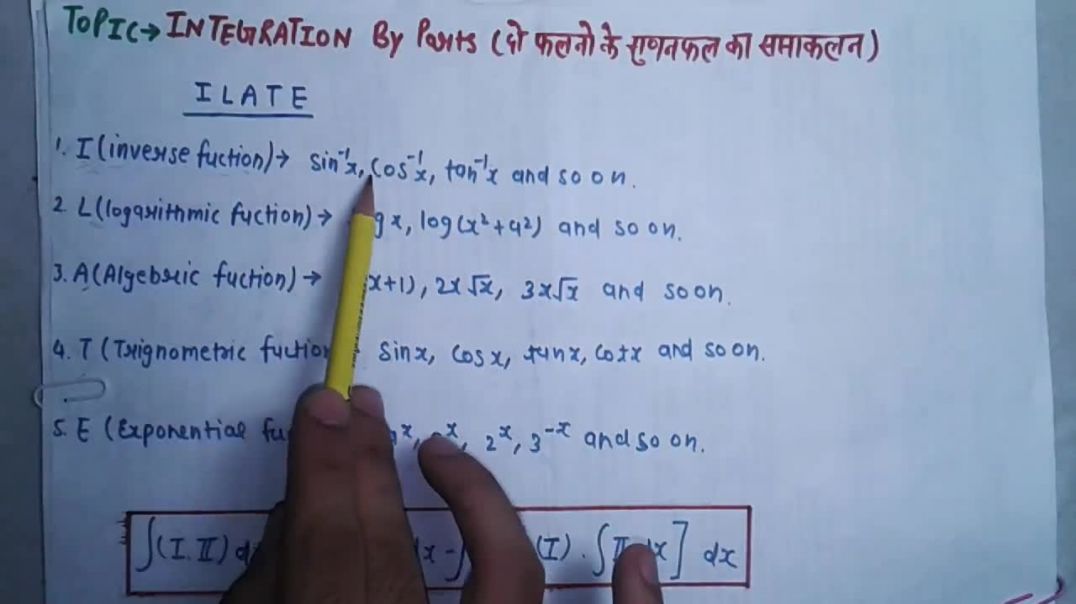 TOPIC→ INTEGRATION By Parts (दो फलनो के गुणनफल का समाकलन)
ILATE
1. I (inverse fuction)→ sin⁻¹x, cos⁻¹x, tan⁻¹x and so on.
2 L (logarithmic fuction)→ g x, log(x²+a²) and so on.
3. A (Algebric fuction)→ x+1), 2x√x, 3x√x and so on.
4. T (Trignometric fuction sinx, cosx, tanx, cotx and so on.
5. E (Exponential fu x, x, 2ˣ, 3⁻ˣ and so on.
∫(I.II) d dx - ∫ (I) . ∫II dx] dx